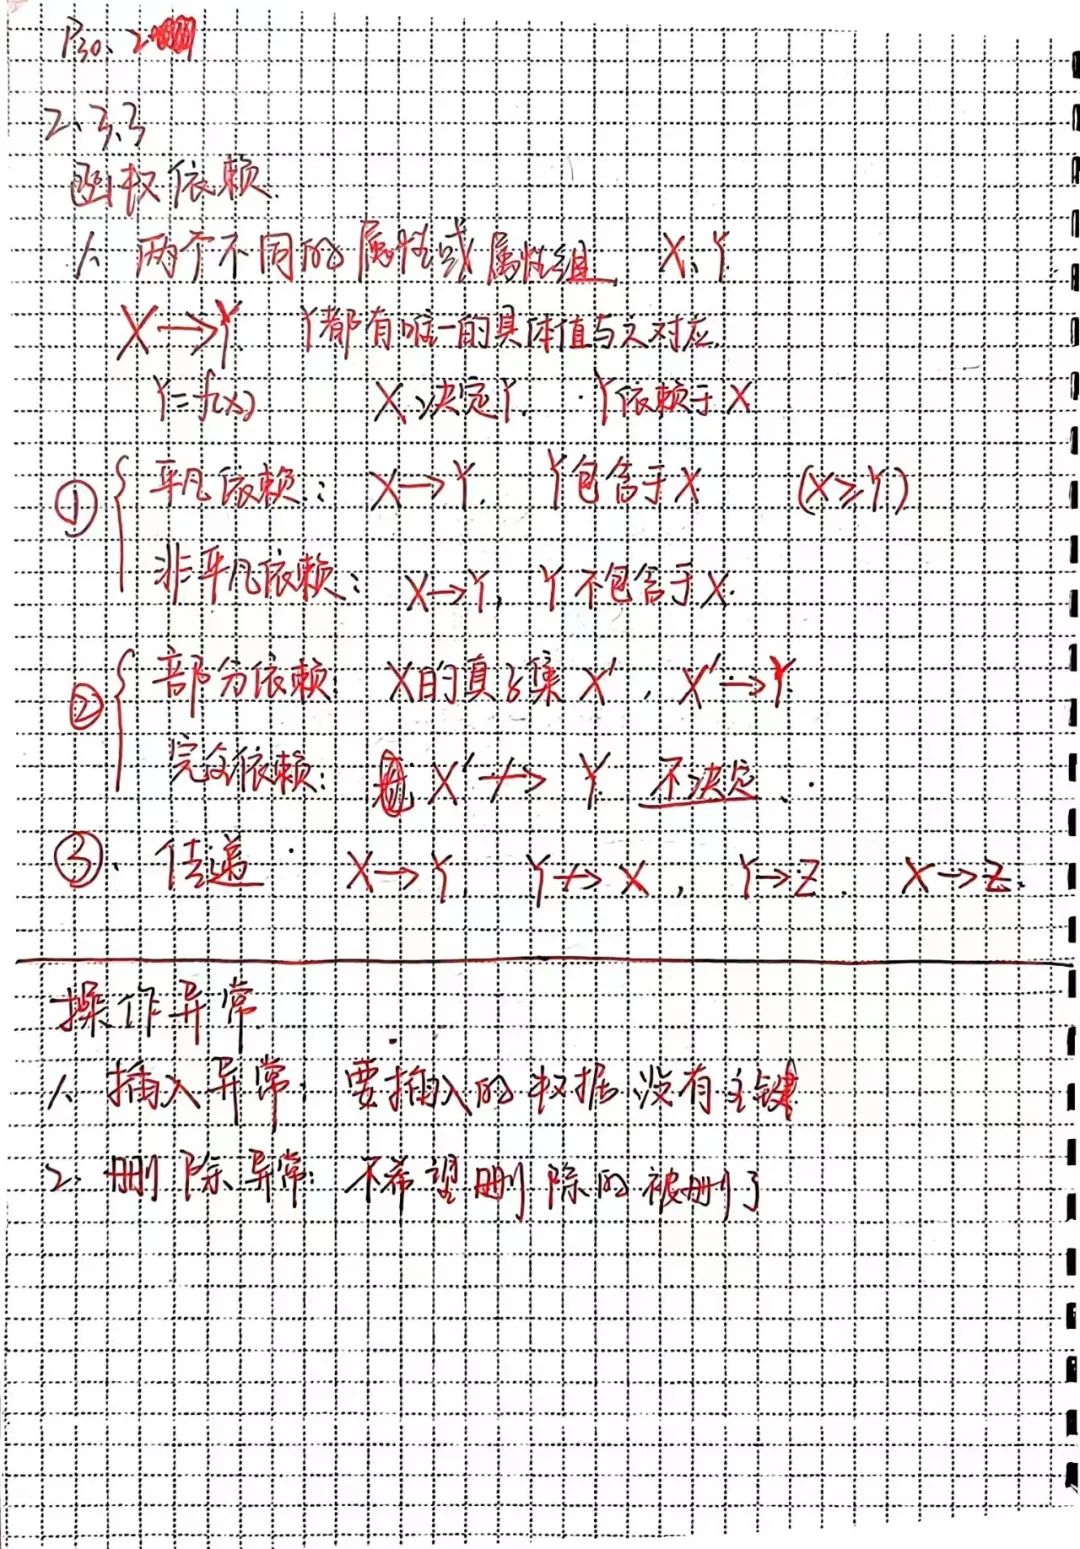 P30、2
2、3、3
函权依赖
1、两个不同的属性或属性组 X、Y
X→Y Y都有唯一的具体值与之对应.
Y=f(x) X决定Y. Y依赖于X
① 平凡依赖: X→Y, Y包含于X (X≥Y)
非平凡依赖: X→Y, Y不包含于X.
② 部分依赖 X的真子集X', X'→Y
完全依赖: X'↛Y 不决定、
③、传递 X→Y, Y↛X, Y→Z, X→Z.
操作异常
1、插入异常: 要插入的权据没有主键
2、删除异常: 不希望删除的被删了